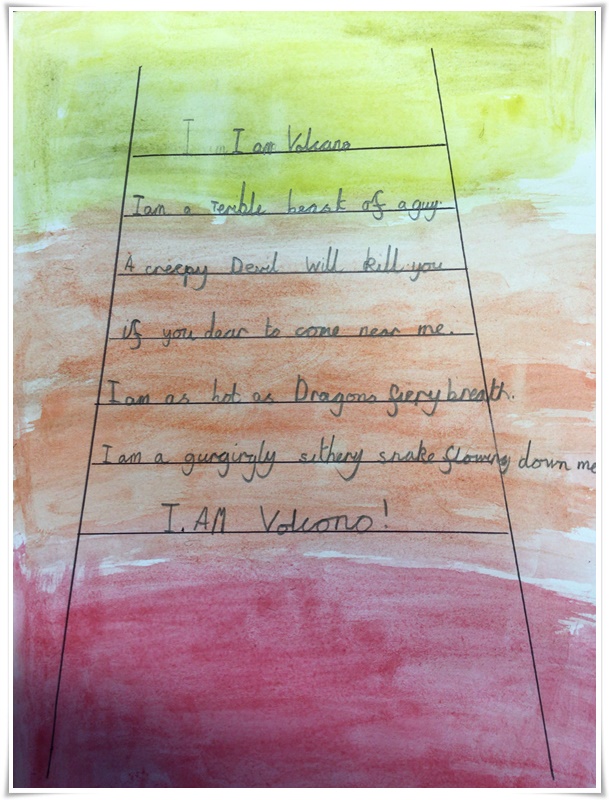 I am Volcano
I am a terrible beast of a guy.
A creepy Devil will kill you
if you dear to come near me.
I am as hot as Dragons fiery breath.
I am a gurgirgly sithery snake flowing down me
I. AM Volcono!